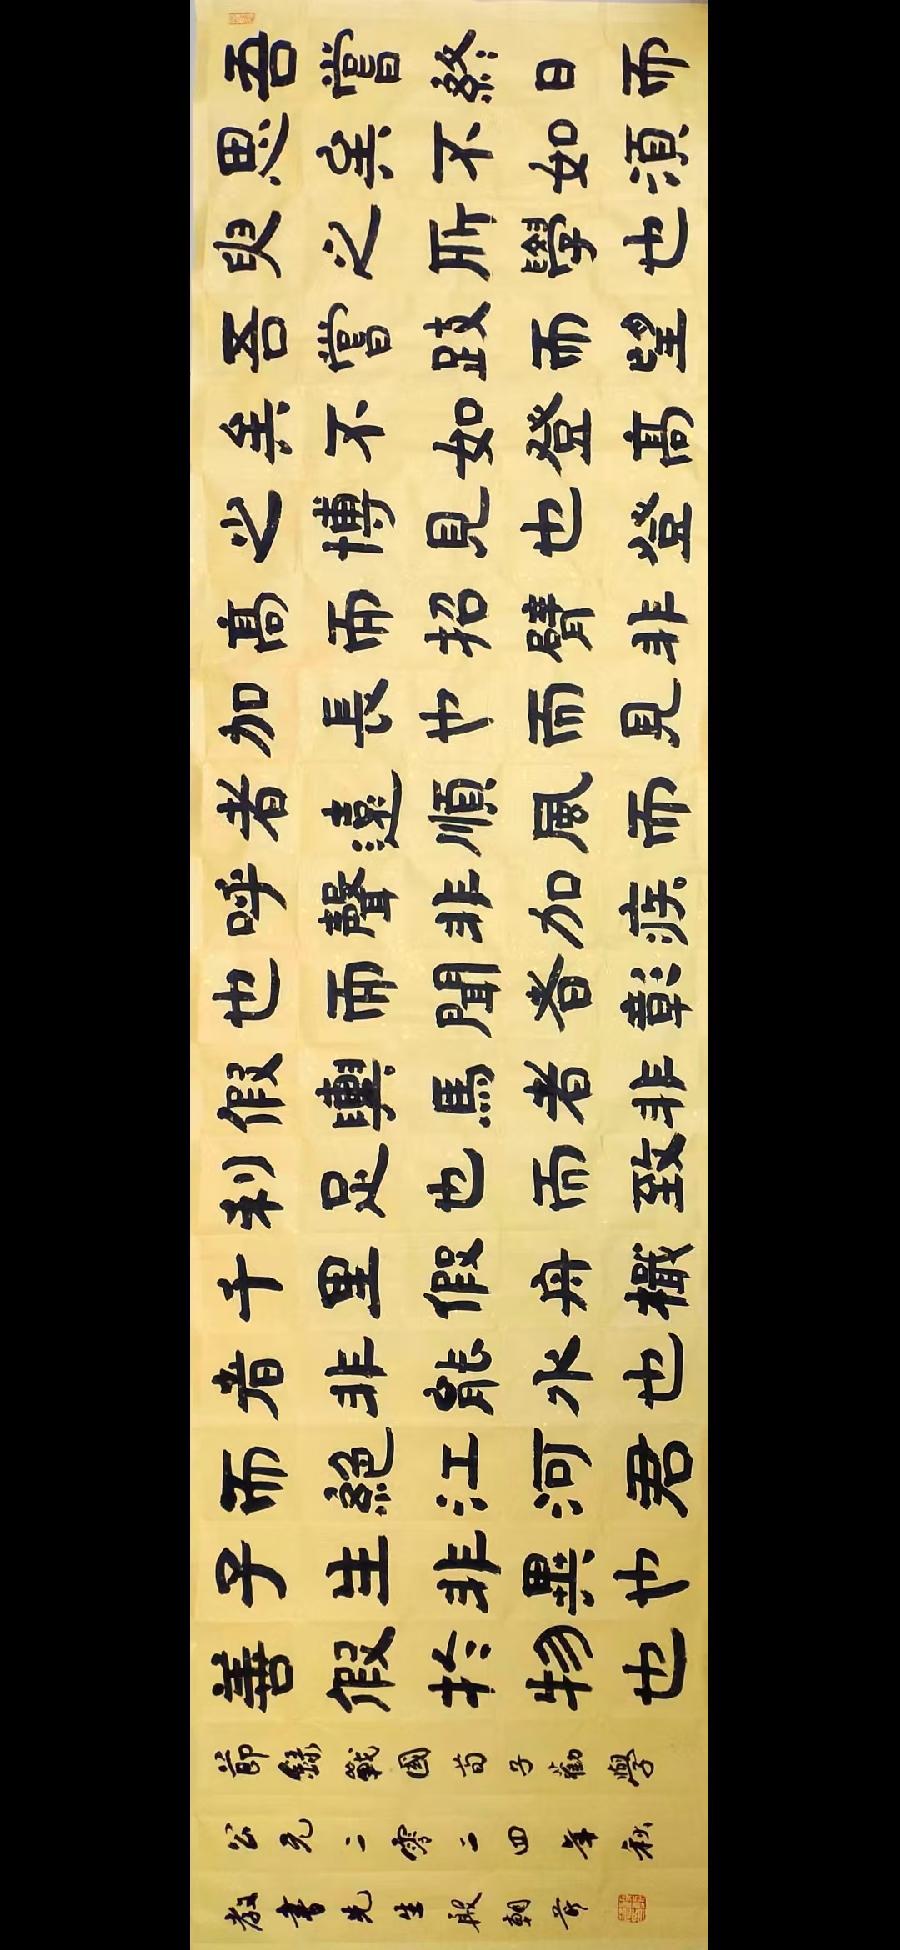 吾嘗終日而
思矣不如須
臾之所學也
吾嘗跂而望
矣不如登高
之博見也登
高而招臂非
加長也而見
者遠順風而
呼聲非加疾
也而聞者彰
假輿馬者非
利足也而致
千里假舟檝
者非能水也
而絕江河君
子生非異也
善假於物也
節錄戰國荀子勸學
公元二零二四年秋
教書先生殷朝